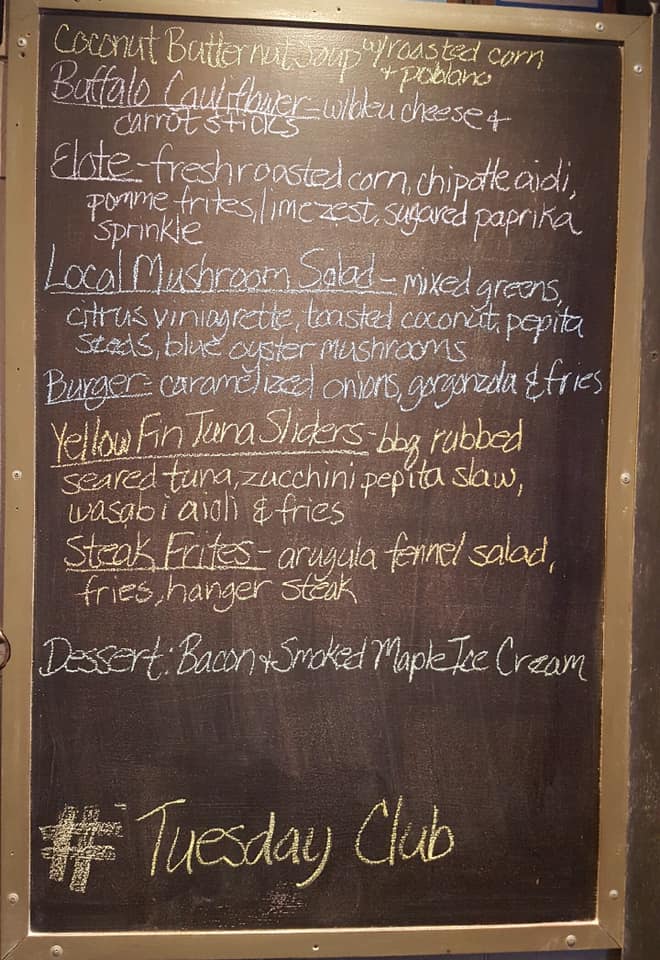 Coconut Butternut Soup w/roasted corn
+ poblano
Buffalo Cauliflower - w/bleu cheese +
carrot sticks
Elote - fresh roasted corn, chipotle aioli,
pomme frites, lime zest, sugared paprika
sprinkle
Local Mushroom Salad - mixed greens,
citrus viniagrette, toasted coconut, pepita
seeds, blue oyster mushrooms
Burger - caramelized onions, gorgonzola & fries
Yellow Fin Tuna Sliders - bbq rubbed
seared tuna, zucchini pepita slaw,
wasabi aioli & fries
Steak Frites - arugula fennel salad,
fries, hanger steak
Dessert: Bacon + Smoked Maple Ice Cream
# Tuesday Club